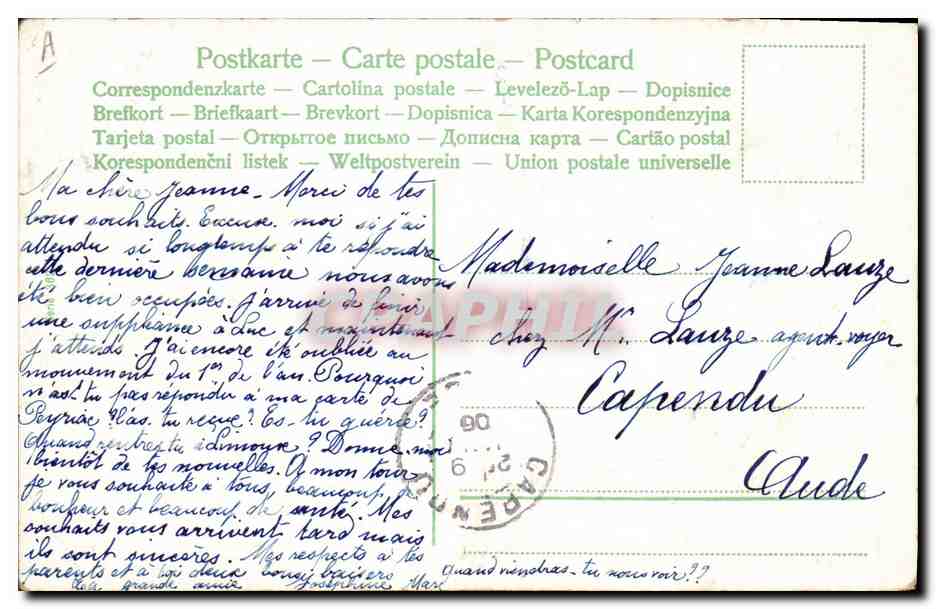 A
Postkarte — Carte postale — Postcard
Correspondenzkarte — Cartolina postale — Levelező-Lap — Dopisnice
Brefkort — Briefkaart — Brevkort — Dopisnica — Karta Korespondenzyjna
Tarjeta postal — Открытое письмо — Дописна карта — Cartão postal
Korespondenčni listek — Weltpostverein — Union postale universelle
Ma chère Jeanne — Merci de tes
bons souhaits. Excuse moi si j'ai
attendu si longtemps à te répondre
cette dernière semaine nous avons
été bien occupées. J'arrive de finir
une suppléance à Luc et maintenant
j'attends. J'ai encore été oubliée au
mouvement du 1er de l'an. Pourquoi
n'as tu pas répondu à ma carte de
Peyriac? l'as tu reçue? Es-tu guérie?
Quand rentres tu à Limoux? Donne moi
bientôt de tes nouvelles. A mon tour
je vous souhaite à tous, beaucoup de
bonheur et beaucoup de santé. Mes
souhaits vous arrivent tard mais
ils sont sincères. Mes respects à tes
parents et à toi deux bons baisers
grande amie Joséphine
Mademoiselle Jeanne Lauze
chez Mr. Lauze agent-voyer
Capendu
Aude
Quand viendras-tu nous voir??
CAPENDU
9
06
CPAPHIL